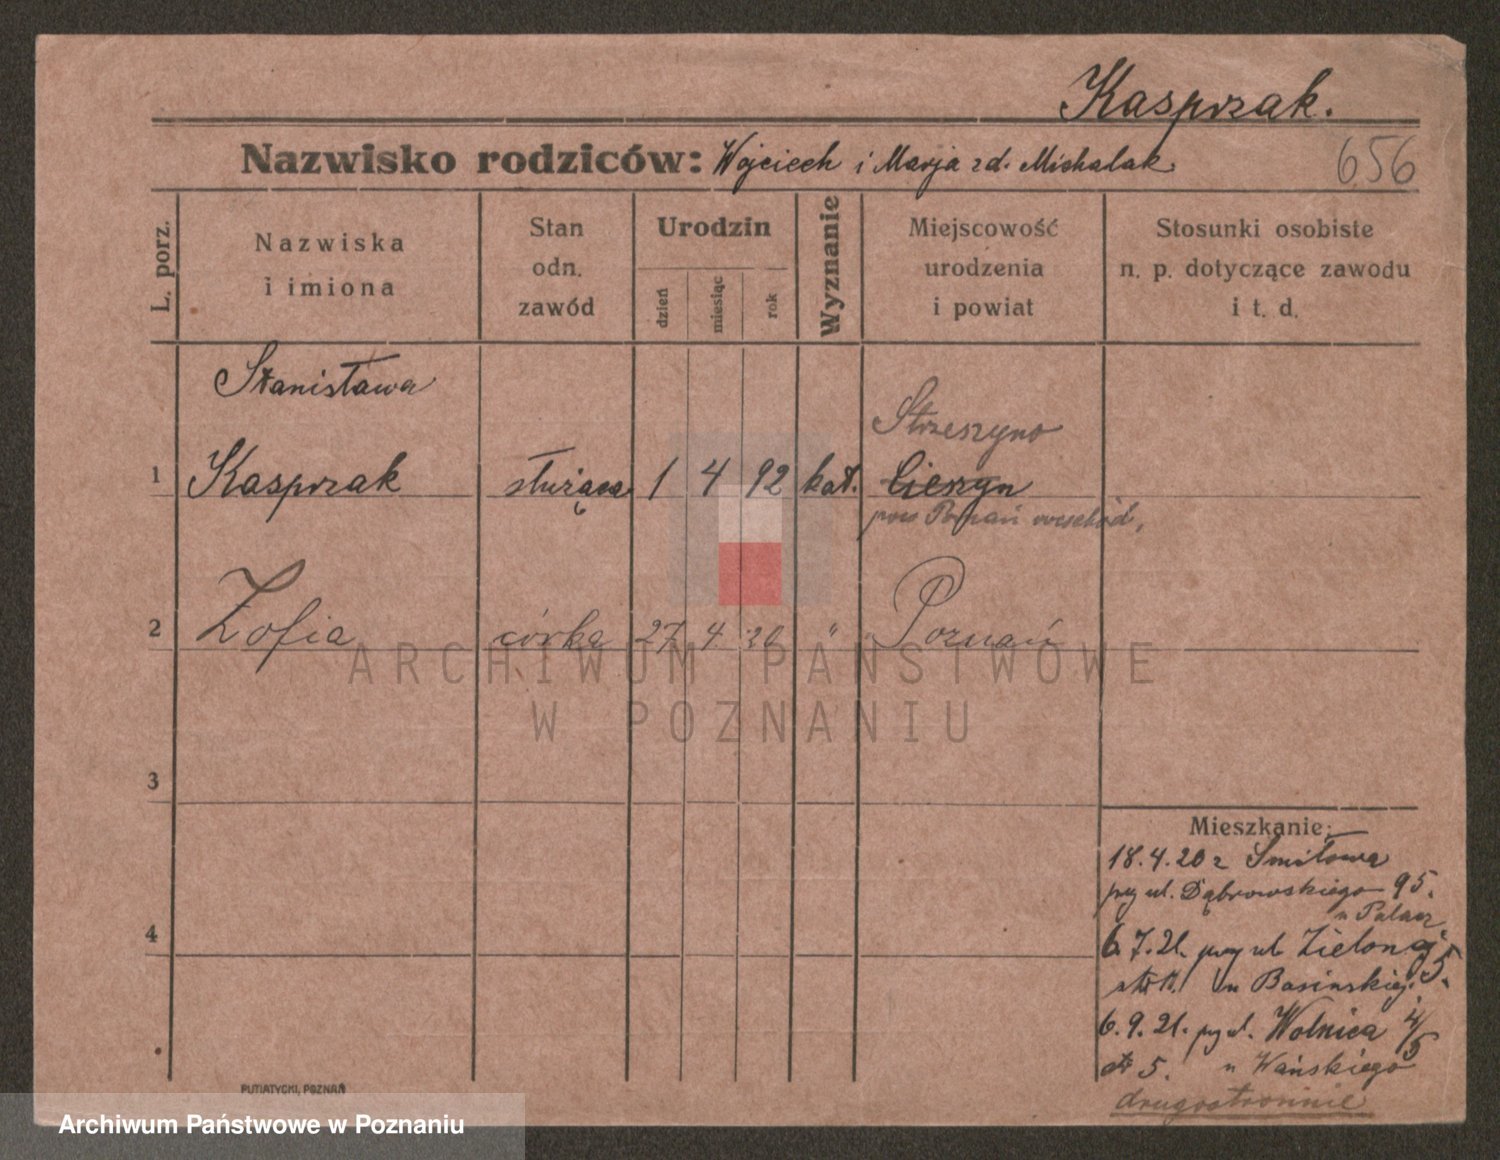 Kasprzak.
Nazwisko rodziców: Wojciech i Marja zd. Michalak
656
L. porz.
Nazwiska
i imiona
Stan
odn.
zawód
Urodzin
dzień
miesiąc
rok
Wyznanie
Miejscowość
urodzenia
i powiat
Stosunki osobiste
n. p. dotyczące zawodu
i t. d.
Stanisława
Strzeszyno
1 Kasprzak służąca 1 4 92 kat. Cieszyn
pow Poznań wschód,
2 Zofia córka 27 4 20 " Poznań
3
4
Mieszkanie:
18.4.20 z Smiłowa
przy ul. Dąbrowskiego 95.
u Palacz
6.7.21. przy ul Zielonej 5.
u Basińskiej.
6.9.21. przy ul. Wolnica 4/5
5. u Wańskiego
drugostronnie
PUTIATYCKI, POZNAŃ
ARCHIWUM PAŃSTWOWE
W POZNANIU
Archiwum Państwowe w Poznaniu